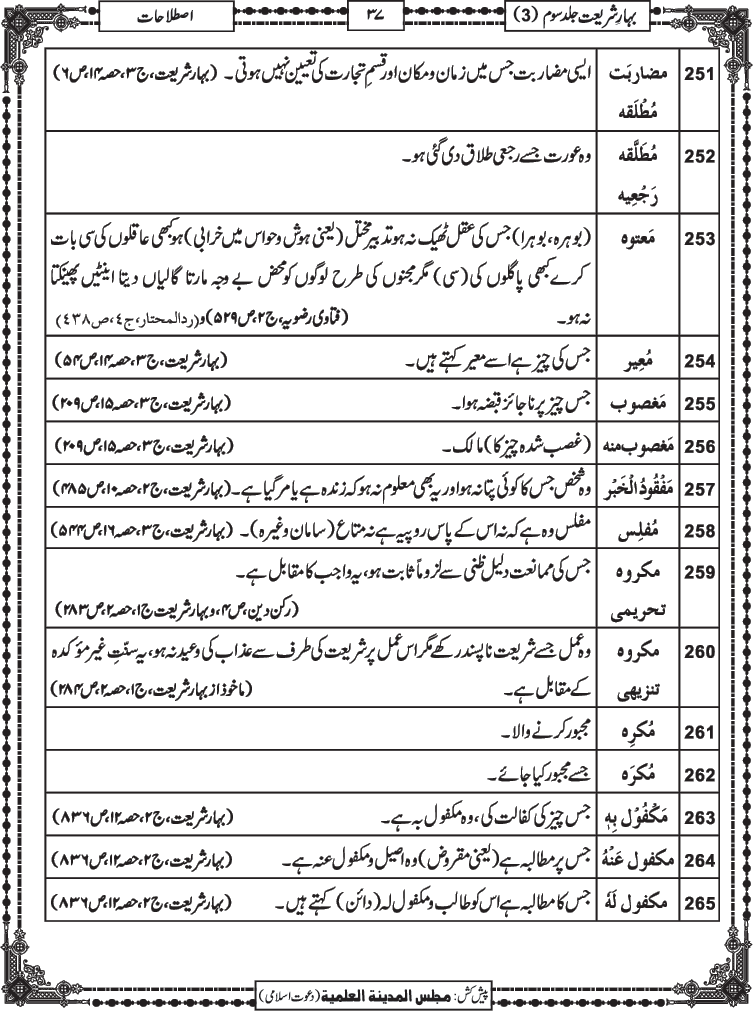 بہارِ شریعت جلد سوم (3)
۳۷
اصطلاحات
251 مضاربَت ایسی مضاربت جس میں زمان و مکان اور قسمِ تجارت کی تعیین نہیں ہوتی۔ (بہارِ شریعت، ج۳، حصہ ۱۴، ص۶)
مُطْلَقه
252 مُطَلَّقه وہ عورت جسے رجعی طلاق دی گئی ہو۔
رَجْعِیه
253 مَعتوہ (بوہرہ، بوہرا) جس کی عقل ٹھیک نہ ہو تدبیر مختل (یعنی ہوش و حواس میں خرابی) ہو کبھی عاقلوں کی سی بات
کرے کبھی پاگلوں کی (سی) مگر مجنوں کی طرح لوگوں کو محض بے وجہ مارتا گالیاں دیتا اینٹیں پھینکتا
نہ ہو۔ (فتاوی رضویہ، ج۲، ص۵۲۹) و (ردالمحتار، ج٤، ص٤٣٨)
254 مُعِیر جس کی چیز ہے اسے معیر کہتے ہیں۔ (بہارِ شریعت، ج۳، حصہ ۱۴، ص۵۴)
255 مَغصوب جس چیز پر ناجائز قبضہ ہوا۔ (بہارِ شریعت، ج۳، حصہ ۱۵، ص۲۰۹)
256 مَغصوب منه (غصب شدہ چیز کا) مالک۔ (بہارِ شریعت، ج۳، حصہ ۱۵، ص۲۰۹)
257 مَفْقُودُ الْخَبَر وہ شخص جس کا کوئی پتا نہ ہو اور یہ بھی معلوم نہ ہو کہ زندہ ہے یا مر گیا ہے۔ (بہارِ شریعت، ج۲، حصہ ۱۰، ص۴۸۵)
258 مُفلِس مفلس وہ ہے کہ نہ اس کے پاس روپیہ ہے نہ متاع (سامان وغیرہ)۔ (بہارِ شریعت، ج۳، حصہ ۱۶، ص۵۴۴)
259 مکروہ جس کی ممانعت دلیل ظنی سے لزوماً ثابت ہو، یہ واجب کا مقابل ہے۔
تحریمی (رکن دین، ص۴، و بہارِ شریعت ج۱، حصہ ۲، ص۲۸۳)
260 مکروہ وہ عمل جسے شریعت ناپسند رکھے مگر اس عمل پر شریعت کی طرف سے عذاب کی وعید نہ ہو، یہ سنّتِ غیر مؤکدہ
تنزیهی کے مقابل ہے۔ (ماخوذ از بہارِ شریعت، ج۱، حصہ ۲، ص۲۸۴)
261 مُکرِہ مجبور کرنے والا۔
262 مُکرَہ جسے مجبور کیا جائے۔
263 مَکْفُوْل بِهٖ جس چیز کی کفالت کی، وہ مکفول بہ ہے۔ (بہارِ شریعت، ج۲، حصہ ۱۲، ص۸۳۶)
264 مکفول عَنْهُ جس پر مطالبہ ہے (یعنی مقروض) وہ اصیل و مکفول عنہ ہے۔ (بہارِ شریعت، ج۲، حصہ ۱۲، ص۸۳۶)
265 مکفول لَهٗ جس کا مطالبہ ہے اس کو طالب و مکفول لہ (دائن) کہتے ہیں۔ (بہارِ شریعت، ج۲، حصہ ۱۲، ص۸۳۶)
پیش کش: مجلس المدینة العلمیة (دعوت اسلامی)